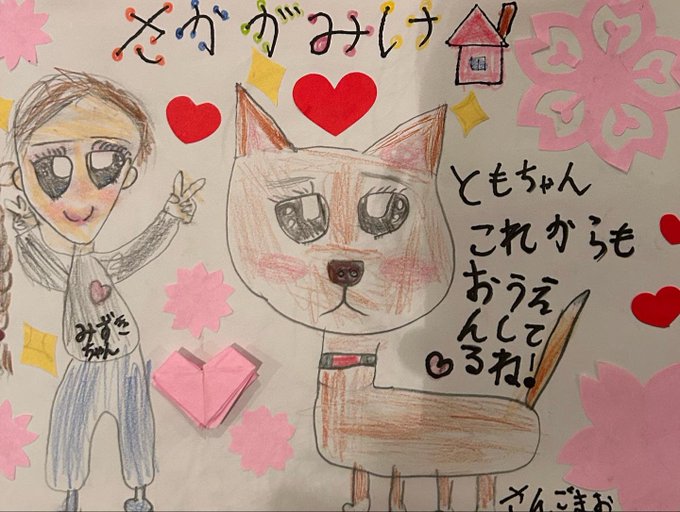 さかがみけ
ともちゃん
これからも
おうえ
んして
るね!
みずき
ちゃん
さんごまお